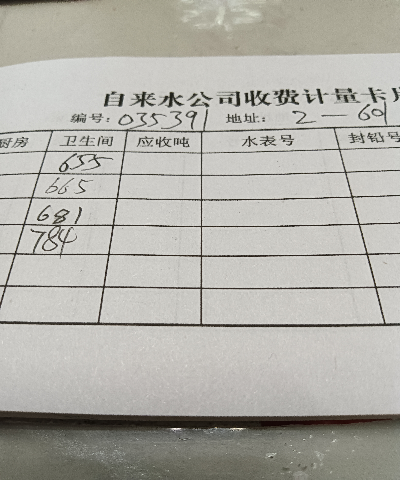 自来水公司收费计量卡片
编号：035391 地址：2－60
厨房 卫生间 应收吨 水表号 封铅号
655
665
681
784